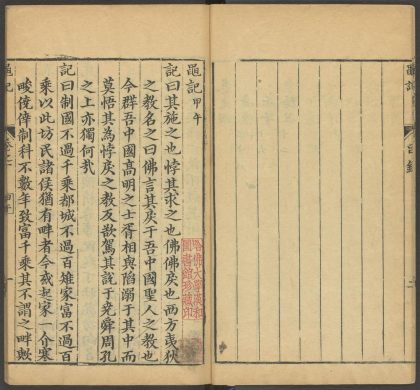 黽記
目錄
黽記甲午
記曰其施之也悖其求之也佛佛戾也西方夷狄
之教名之曰佛言其戾于吾中國聖人之教也
今群吾中國高明之士胥相與陷溺于其中而
莫悟其為悖戾之教反欲駕其說于堯舜周孔
之上亦獨何哉
記曰制國不過千乘都城不過百雉家富不過百
乘以此坊民諸侯猶有畔者今或起家一介寒
畯僥倖制科不數年致富千乘其不謂之畔歟
哈佛大學漢和
圖書館珍藏印
黽記
卷之一
甲午
一